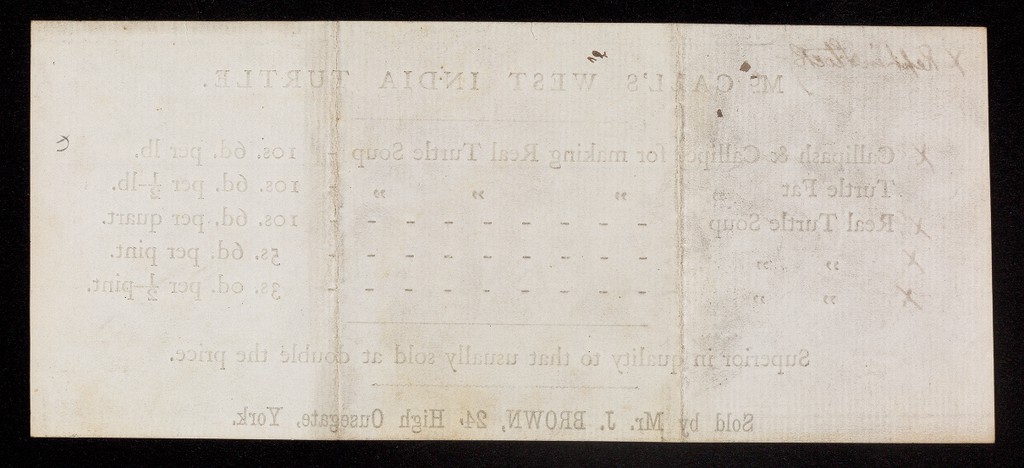 McCALL'S WEST INDIA TURTLE.
x Callipash & Callipee for making Real Turtle Soup - 10s. 6d. per lb.
Turtle Fat " " " " 10s. 6d. per ½-lb.
x Real Turtle Soup - - - - - - - - - 10s. 6d. per quart.
x " " - - - - - - - - - 5s. 6d. per pint.
x " " - - - - - - - - - 3s. 0d. per ½-pint.
Superior in quality to that usually sold at double the price.
Sold by Mr. J. BROWN, 24, High Ousegate, York.